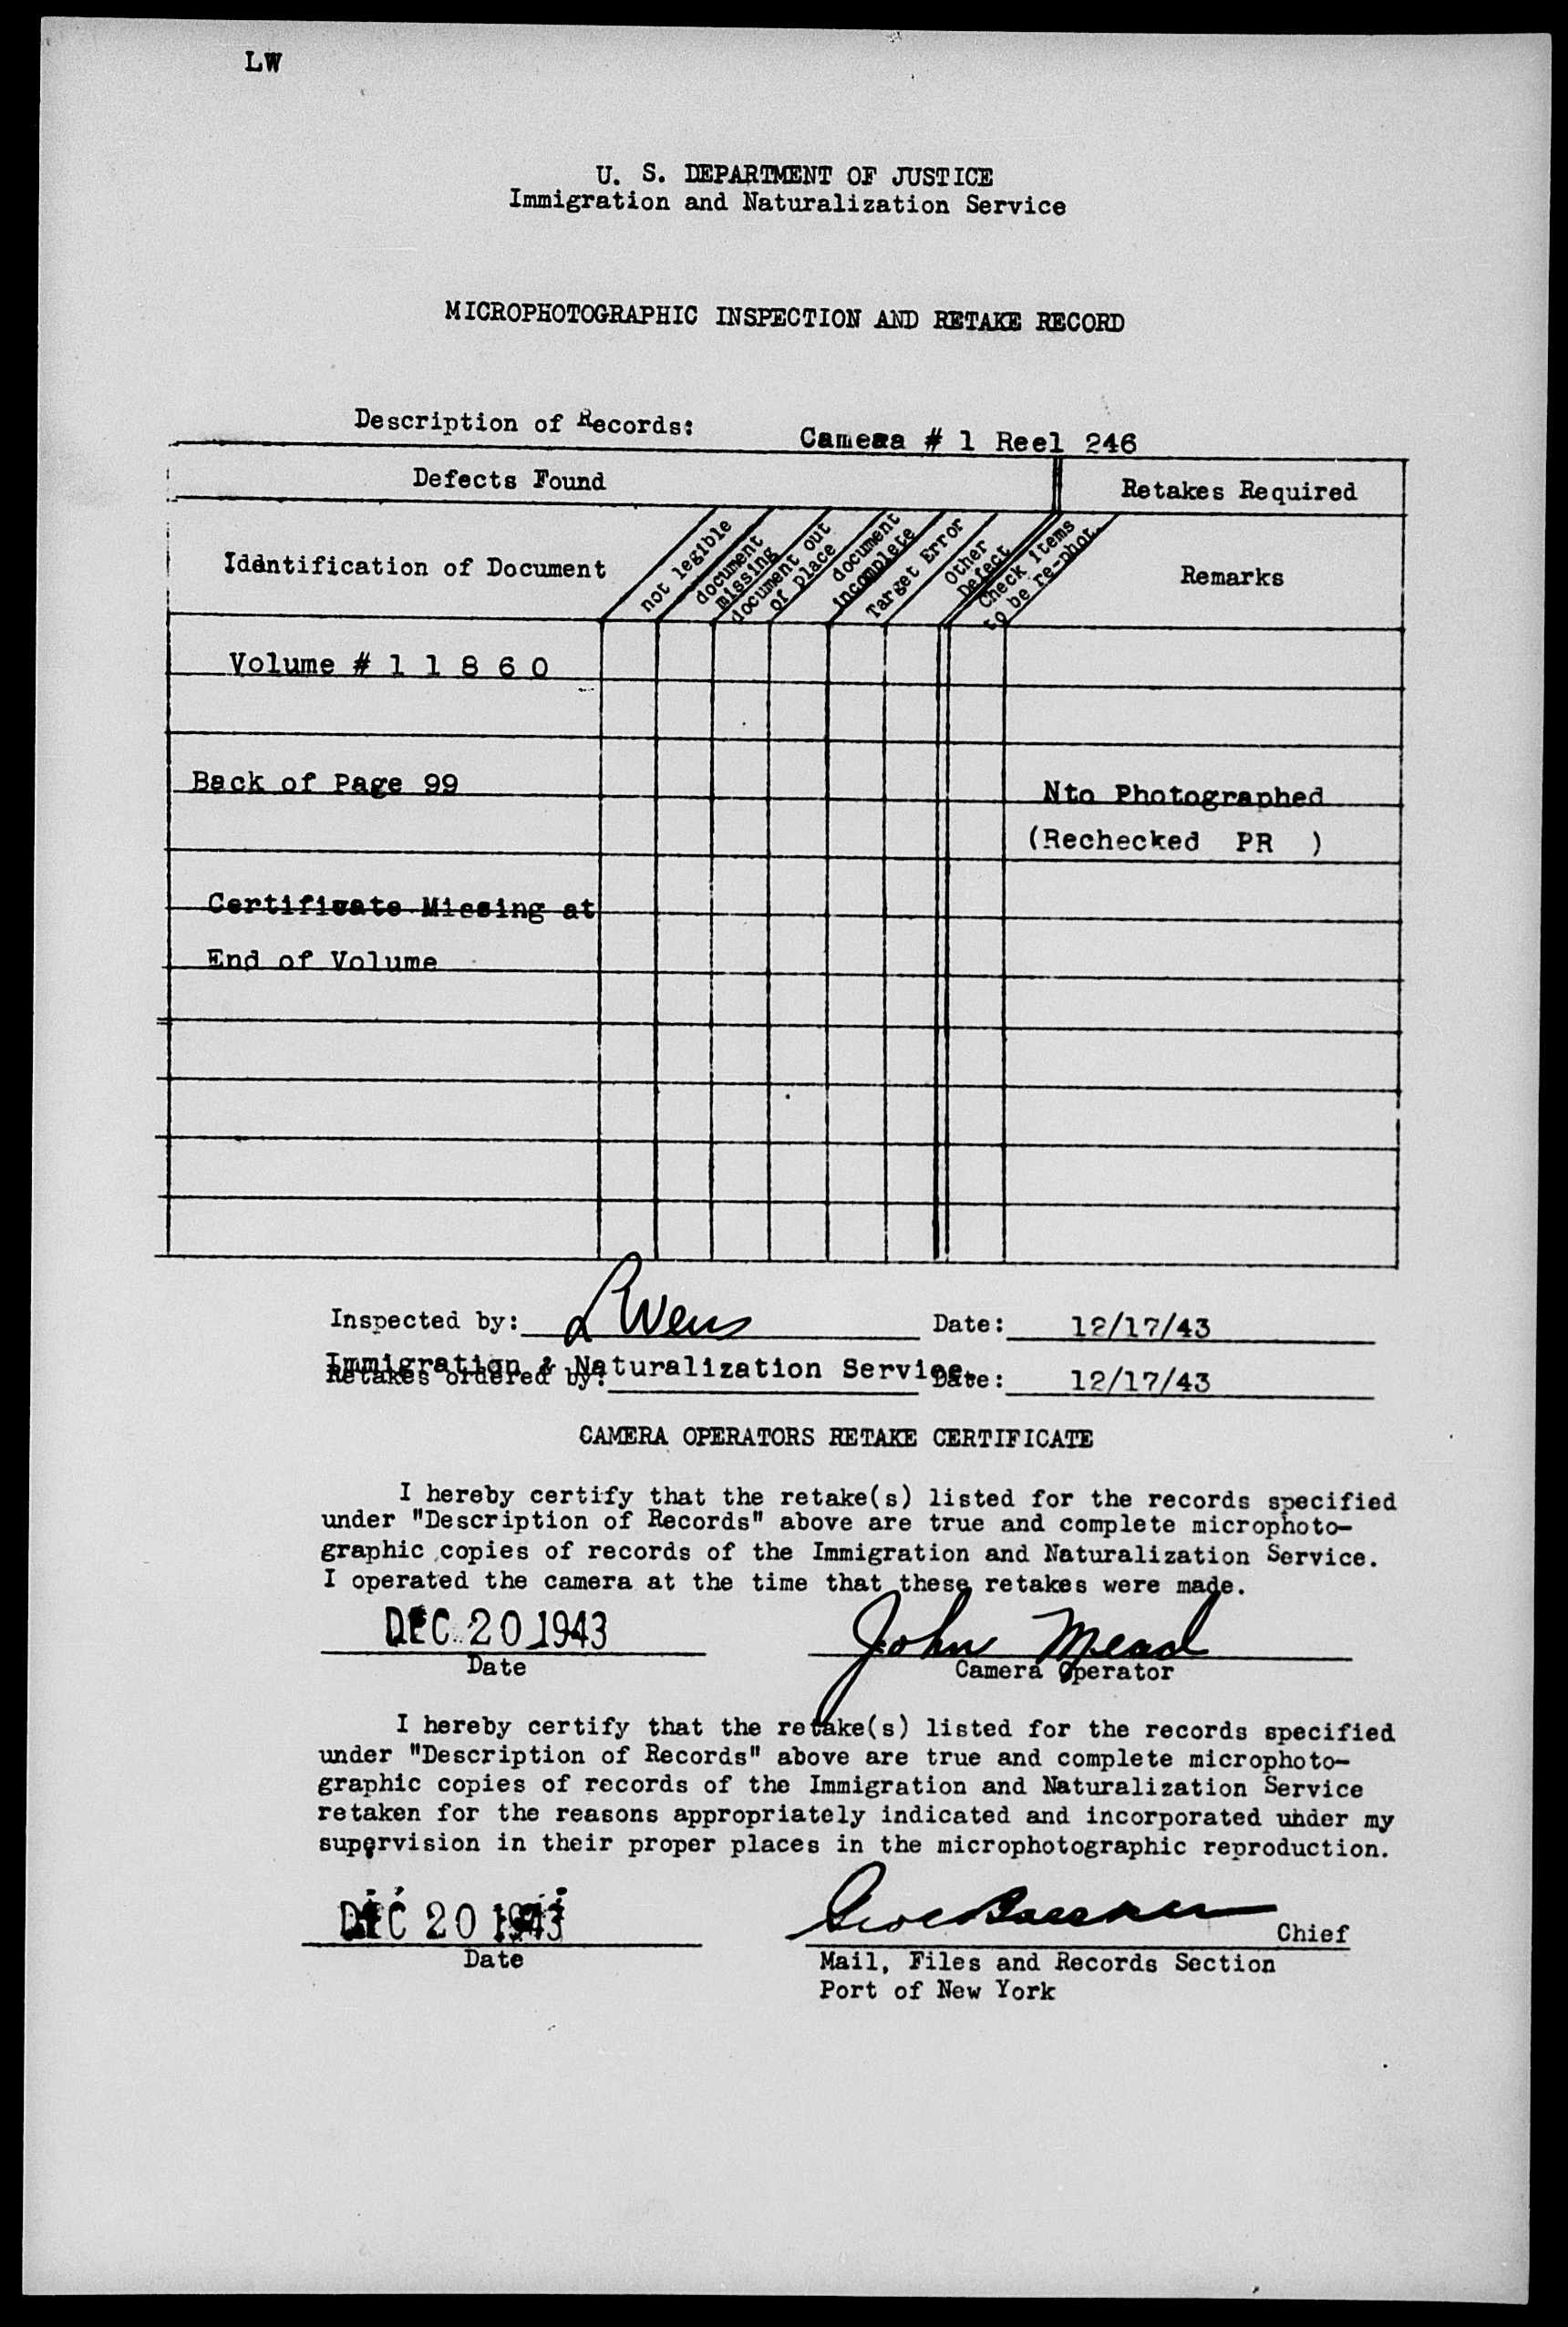 LW
U. S. DEPARTMENT OF JUSTICE
Immigration and Naturalization Service
MICROPHOTOGRAPHIC INSPECTION AND RETAKE RECORD
Description of Records: Camera # 1 Reel 246
Defects Found
Retakes Required
Identification of Document
not legible
document
missing
document out
of place
document
incomplete
Target Error
Other
Defect
Check items
to be re-phot.
Remarks
Volume # 1 1 8 6 0
Back of Page 99
Nto Photographed
(Rechecked PR )
Certificate Missing at
End of Volume
Inspected by: Date: 12/17/43
Immigration & Naturalization Service.
Retakes ordered by: Date: 12/17/43
CAMERA OPERATORS RETAKE CERTIFICATE
I hereby certify that the retake(s) listed for the records specified
under "Description of Records" above are true and complete microphoto-
graphic copies of records of the Immigration and Naturalization Service.
I operated the camera at the time that these retakes were made.
DEC 20 1943 John Mead
Date Camera Operator
I hereby certify that the retake(s) listed for the records specified
under "Description of Records" above are true and complete microphoto-
graphic copies of records of the Immigration and Naturalization Service
retaken for the reasons appropriately indicated and incorporated under my
supervision in their proper places in the microphotographic reproduction.
DEC 20 1943 Chief
Date Mail, Files and Records Section
Port of New York